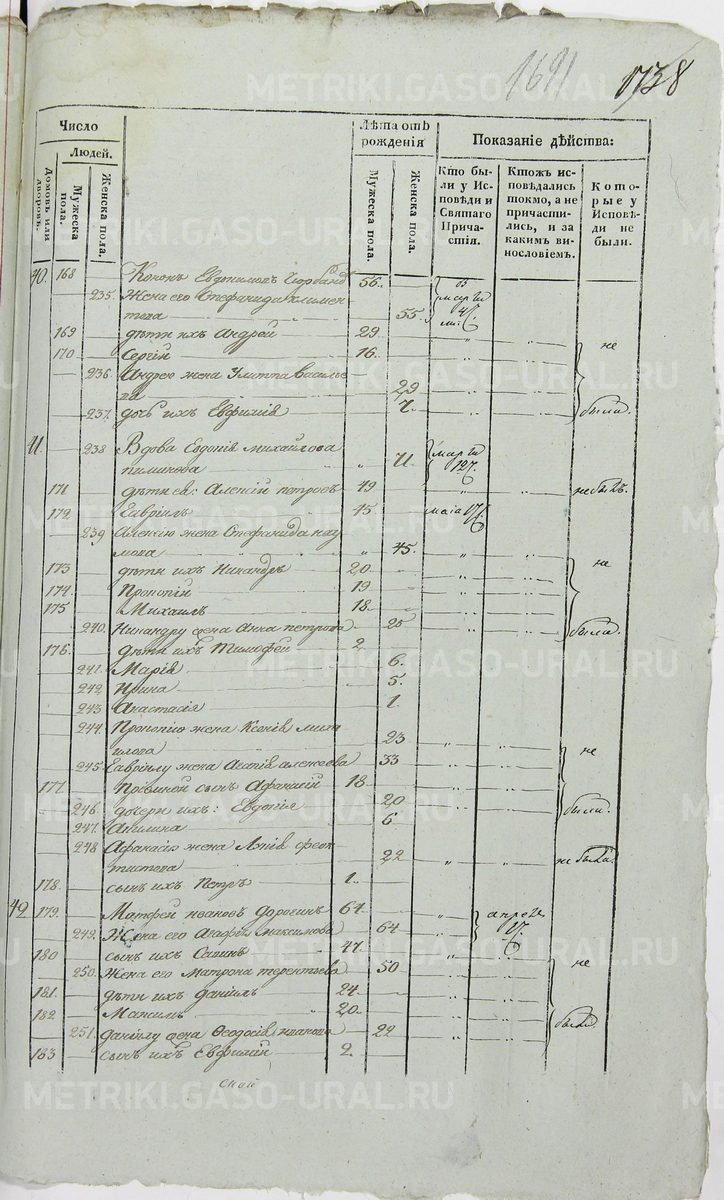 1691 1738
Число
Людей.
Домовъ или дворовъ.
Мужеска пола.
Женска пола.
Лѣта отъ рожденія
Мужеска пола.
Женска пола.
Показаніе дѣйства:
Кто бы-
ли у Ис-
повѣди и
Святаго
Прича-
стія.
Ктожъ ис-
повѣдались
токмо, а не
причасти-
лись, и за
какимъ ви-
нословіемъ.
Кото-
рые у
Исповѣ-
ди не
были.
40. 168 Кононъ Евдокимовъ 56.
235. Жена его Стефанида Климен-
това 55
169 дѣти ихъ Андрей 29
170 Сергій 16. не
236. Андрею жена Улитта Василье-
ва 29
237. дочь ихъ Евфимія 7. была.
41. 238 Вдова Евдокія Михайлова
71. марта
127.
171 дѣти ея: Алексій Петровъ 49 не былъ.
172 Гавріилъ 45 маія 17
239 Алексію жена Стефанида Нау-
мова 45.
173 дѣти ихъ Никандръ 20 не
174. Прокопій 19
175 Михаилъ 18
240. Никандру жена Анна Петрова 25 была.
176. дѣти ихъ Тимофей 2
241. Марія 6.
242. Ирина 5.
243 Анастасія 1.
244 Прокопію жена Ксенія Миха-
илова 23
245 Гавріилу жена Агапія Алексеева 33 не
177. сынъ Афанасій 18
246. дочери ихъ: Евдокія 20 были.
247. Акилина 6
248 Афанасію жена Феок-
тистова 22 не была.
178. сынъ ихъ Петръ 1.
42 179. Матфей Ивановъ Дорогинъ 64 апреля
249. Жена его Агафія Максимова 64 17.
180 сынъ ихъ Савинъ 47.
250. Жена его Матрона Терентьева 50 не
181. дѣти ихъ Даніилъ 24
182 Максимъ 20
251. Даніилу жена Феодосія Иванова 22 были
183 сынъ ихъ Евфимій 2.
METRIKI.GASO-URAL.RU